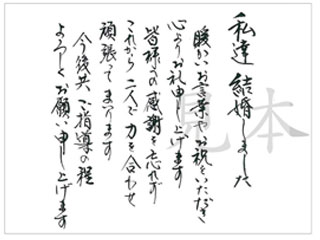 私達 結婚しました
暖かいお言葉やお祝をいただき
心よりお礼申し上げます
皆様への感謝を忘れず
これから二人で力を合わせ
頑張ってまいります
今後共 ご指導の程
よろしくお願い申し上げます
見本